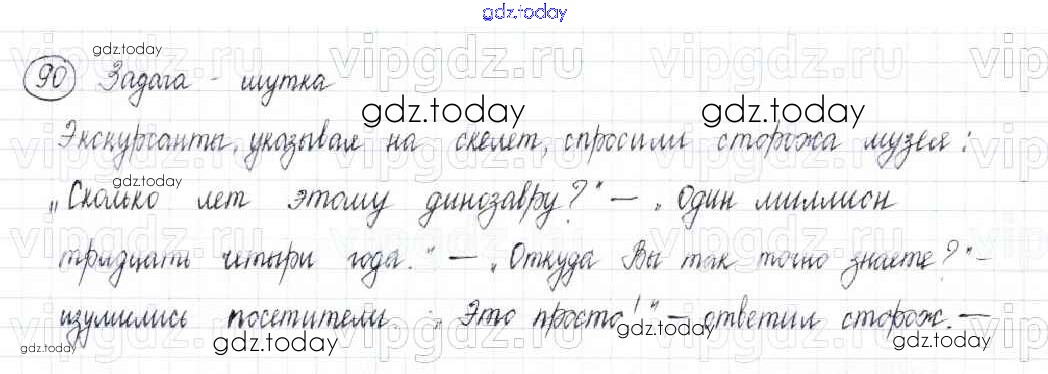 gdz.today
90 Задача - шутка
Экскурсанты, указывая на скелет, спросили сторожа музея:
„Сколько лет этому динозавру?" — „Один миллион
тридцать четыри года." — „Откуда Вы так точно знаете?" –
изумились посетители. „Это просто!" — ответил сторож. —
gdz.today
gdz.today
gdz.today
gdz.today
gdz.today
gdz.today
gdz.today
vipgdz.ru
vipgdz.ru
vipgdz.ru